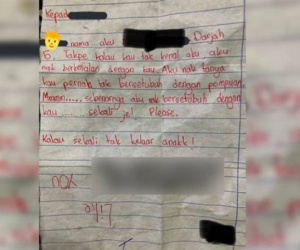 Kepada
nama aku Darjah
6. Takpe kalau kau tak kenal aku aku
nak berkenalan dengan kau. Aku nak tanya
kau pernah tak bersetubuh dengan
sebenarnya aku nak bersetubuh dengan
kau sekali je! Please.
Kalau sekali tak keluar anak!